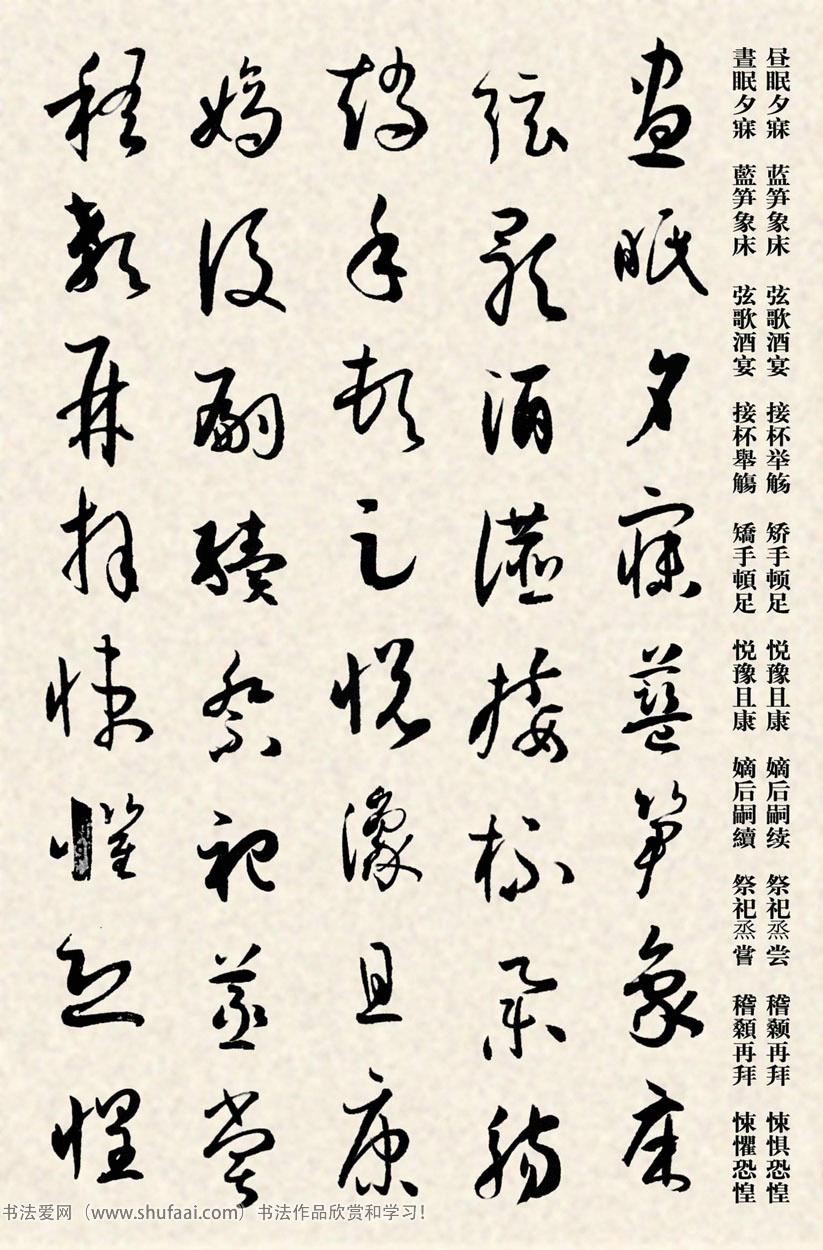 昼眠夕寐 蓝笋象床 弦歌酒宴 接杯举觞 矫手顿足 悦豫且康 嫡后嗣续 祭祀烝尝 稽颡再拜 悚惧恐惶
晝眠夕寐 藍笋象床 弦歌酒宴 接杯舉觴 矯手頓足 悦豫且康 嫡后嗣續 祭祀烝嘗 稽顙再拜 悚懼恐惶
晝眠夕寐藍笋象床
弦歌酒讌接杯舉觴
矯手頓足悦豫且康
嫡後嗣續祭祀蒸嘗
稽顙再拜悚懼恐惶
书法爱网（www.shufaai.com）书法作品欣赏和学习！